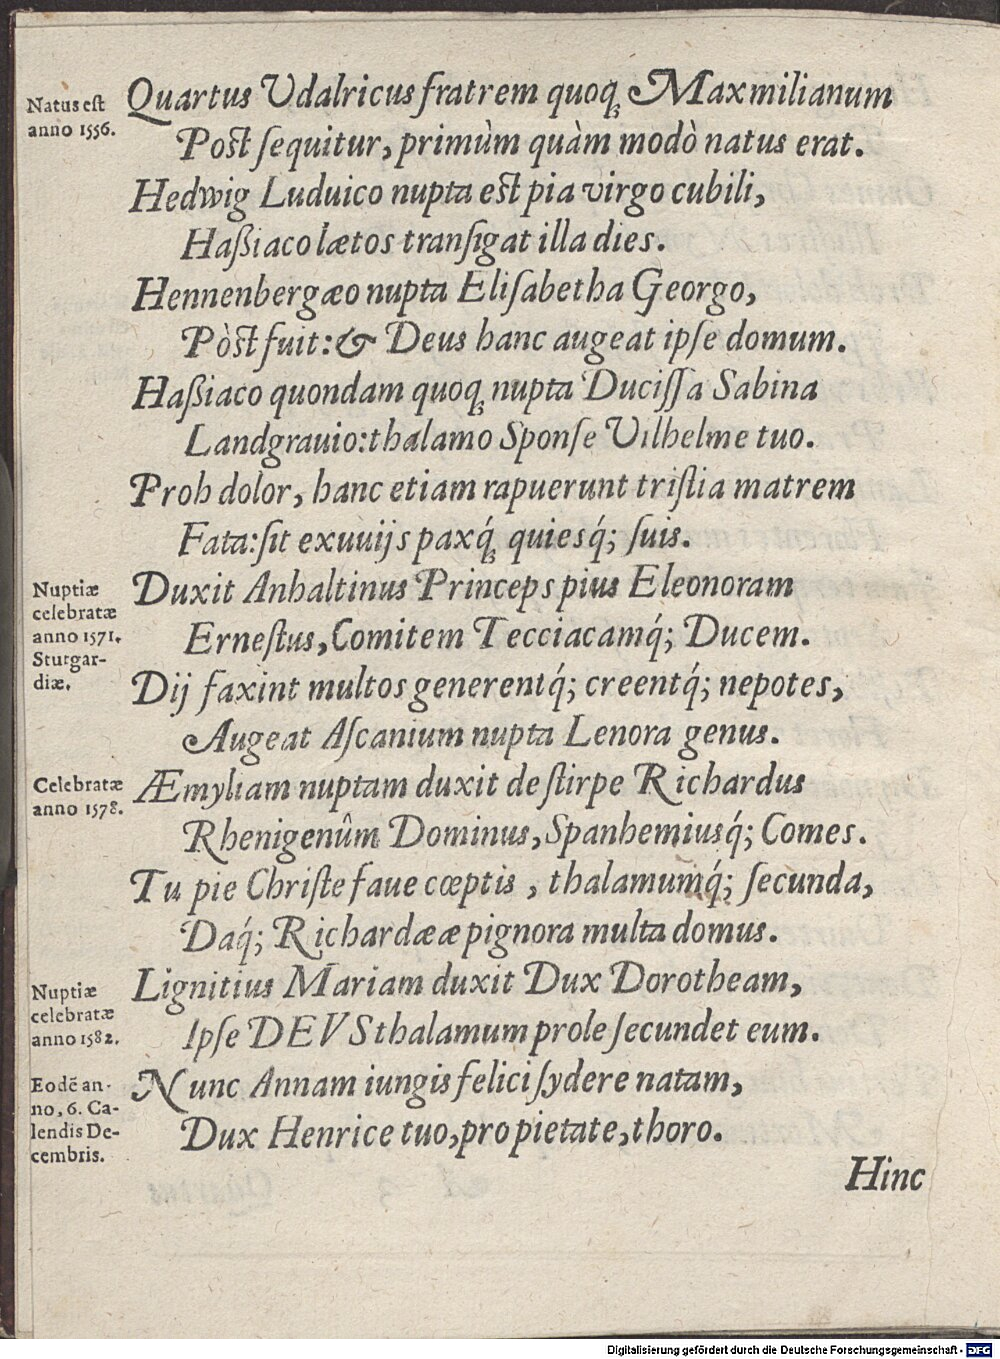 Natus est
anno 1556.
Quartus Vdalricus fratrem quoq; Maxmilianum
Post ſequitur, primùm quàm modò natus erat.
Hedwig Luduico nupta est pia virgo cubili,
Haßiaco lætos tranſigat illa dies.
Hennenbergæo nupta Eliſabetha Georgo,
Pòst fuit: & Deus hanc augeat ipſe domum.
Haßiaco quondam quoq; nupta Duciſſa Sabina
Landgrauio: thalamo Sponſe Vilhelme tuo.
Proh dolor, hanc etiam rapuerunt triſtia matrem
Fata: ſit exuuijs paxq́; quiesq́; ſuis.
Nuptiæ
celebratæ
anno 1571.
Stutgar-
diæ.
Duxit Anhaltinus Princeps pius Eleonoram
Erneſtus, Comitem Tecciacamq́; Ducem.
Dij faxint multos generentq́; creentq́; nepotes,
Augeat Aſcanium nupta Lenora genus.
Celebratæ
anno 1578.
Æmyliam nuptam duxit de ſtirpe Richardus
Rhenigenûm Dominus, Spanhemiusq́; Comes.
Tu pie Chriſte faue cœptis, thalamumq́; ſecunda,
Daq́; Richardææ pignora multa domus.
Nuptiæ
celebratæ
anno 1582.
Lignitius Mariam duxit Dux Dorotheam,
Ipſe DEVS thalamum prole ſecundet eum.
Eodē an-
no, 6. Ca-
lendis De-
cembris.
Nunc Annam iungis felici ſydere natam,
Dux Henrice tuo, pro pietate, thoro.
Hinc
Digitalisierung gefördert durch die Deutsche Forschungsgemeinschaft - DFG